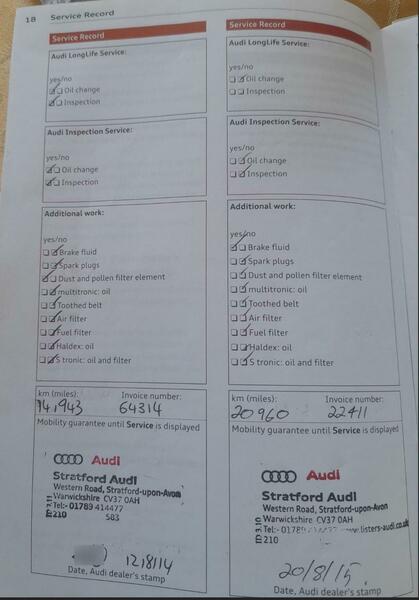 18 Service Record
Service Record
Audi LongLife Service:
yes/no
Oil change
Inspection
Audi Inspection Service:
yes/no
Oil change
Inspection
Additional work:
yes/no
Brake fluid
Spark plugs
Dust and pollen filter element
multitronic: oil
Toothed belt
Air filter
Fuel filter
Haldex: oil
S tronic: oil and filter
km (miles): Invoice number:
14,943 64314
Mobility guarantee until Service is displayed
Audi
Stratford Audi
Western Road, Stratford-upon-Avon
Warwickshire CV37 0AH
Tel:- 01789 414477
210 583
12/8/14
Date, Audi dealer's stamp
Service Record
Audi LongLife Service:
yes/no
Oil change
Inspection
Audi Inspection Service:
yes/no
Oil change
Inspection
Additional work:
yes/no
Brake fluid
Spark plugs
Dust and pollen filter element
multitronic: oil
Toothed belt
Air filter
Fuel filter
Haldex: oil
S tronic: oil and filter
km (miles): Invoice number:
20960 22411
Mobility guarantee until Service is displayed
Audi
Stratford Audi
Western Road, Stratford-upon-Avon
Warwickshire CV37 0AH
Tel:- 01789
210
20/8/15.
Date, Audi dealer's stamp